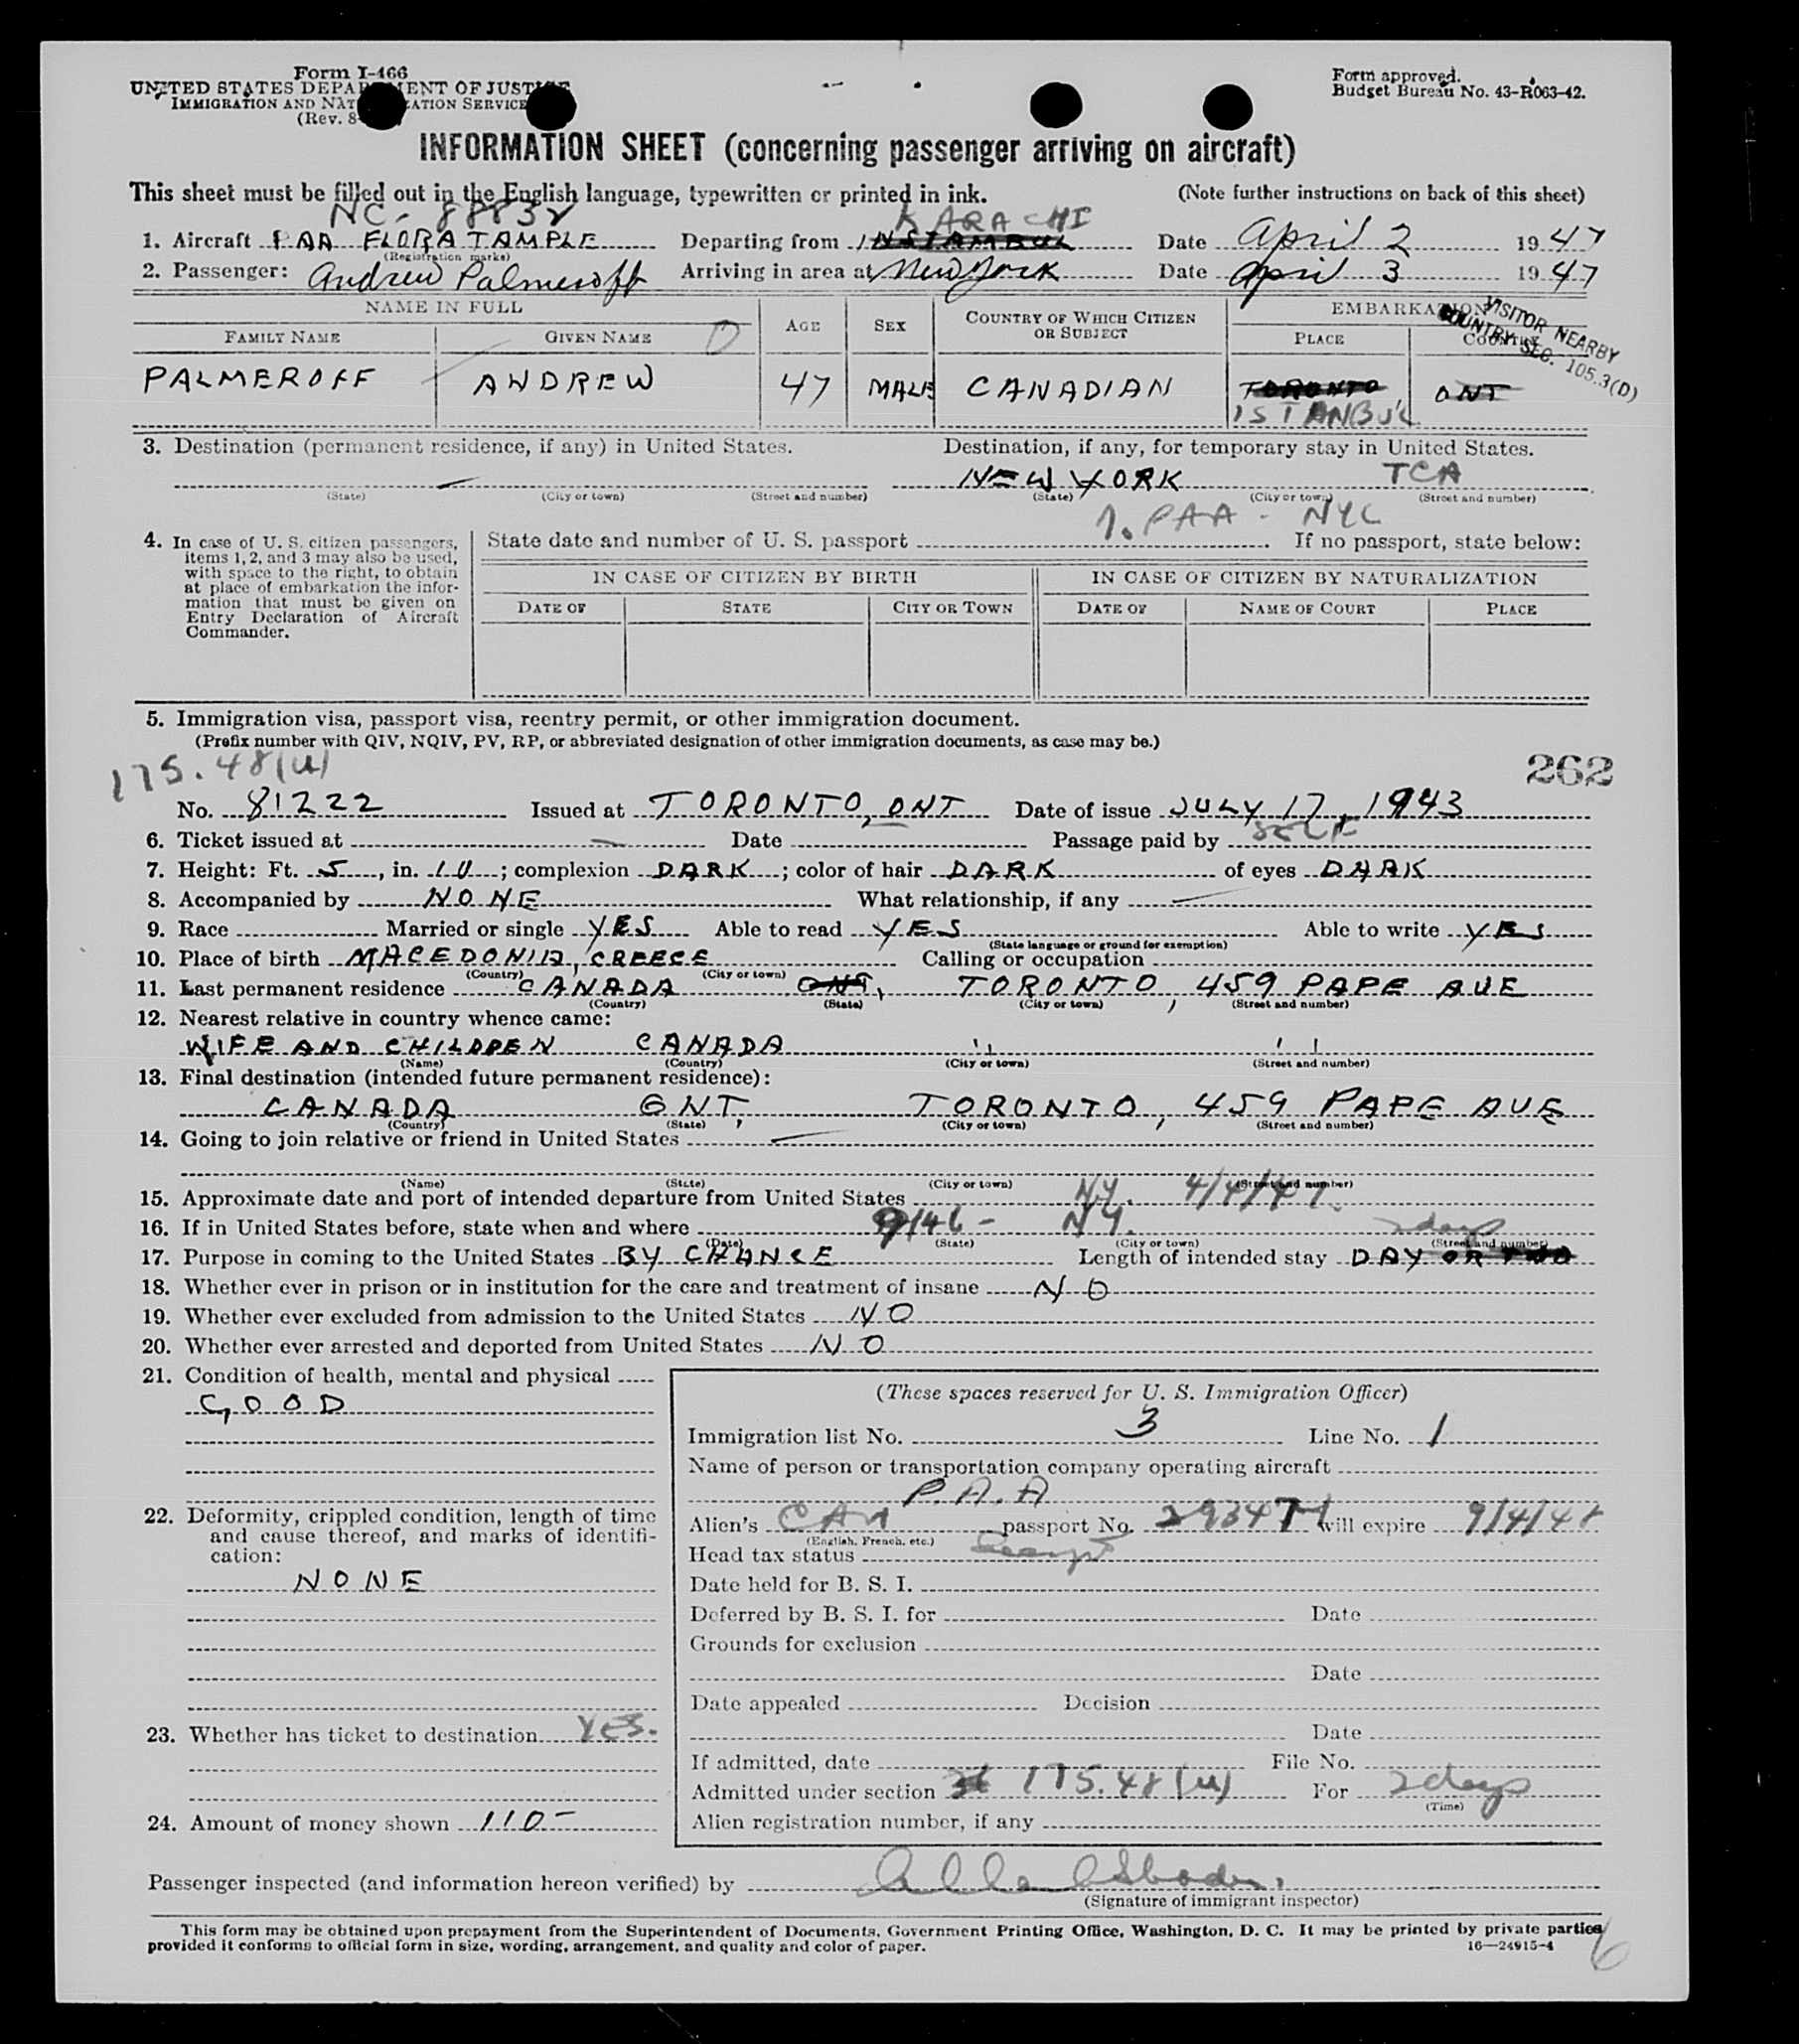 Form I-466
UNITED STATES DEPARTMENT OF JUSTICE
IMMIGRATION AND NATURALIZATION SERVICE
(Rev. 8-
Form approved.
Budget Bureau No. 43-R063-42.
INFORMATION SHEET (concerning passenger arriving on aircraft)
This sheet must be filled out in the English language, typewritten or printed in ink. (Note further instructions on back of this sheet)
NC- 88832 KARACHI
1. Aircraft PAA FLORA TAMPLE Departing from INSTAMBUL Date April 2 1947
(Registration marks)
2. Passenger: Andrew Palmeroff Arriving in area at New York Date April 3 1947
NAME IN FULL AGE SEX COUNTRY OF WHICH CITIZEN OR SUBJECT EMBARKATION
FAMILY NAME GIVEN NAME PLACE COUNTRY
VISITOR NEARBY
COUNTRY SEC. 105.3(D)
PALMEROFF ANDREW 47 MALE CANADIAN TORONTO ONT
ISTANBUL
3. Destination (permanent residence, if any) in United States. Destination, if any, for temporary stay in United States.
NEW YORK TCA
(State) (City or town) (Street and number) (State) (City or town) (Street and number)
PAA - NYC
4. In case of U. S. citizen passengers, items 1, 2, and 3 may also be used, with space to the right, to obtain at place of embarkation the information that must be given on Entry Declaration of Aircraft Commander.
State date and number of U. S. passport If no passport, state below:
IN CASE OF CITIZEN BY BIRTH IN CASE OF CITIZEN BY NATURALIZATION
DATE OF STATE CITY OR TOWN DATE OF NAME OF COURT PLACE
5. Immigration visa, passport visa, reentry permit, or other immigration document.
(Prefix number with QIV, NQIV, PV, RP, or abbreviated designation of other immigration documents, as case may be.)
175.48(u) 262
No. 81222 Issued at TORONTO, ONT Date of issue JULY 17, 1943
6. Ticket issued at Date Passage paid by SELF
7. Height: Ft. 5, in. 10; complexion DARK; color of hair DARK of eyes DARK
8. Accompanied by NONE What relationship, if any
9. Race Married or single YES Able to read YES Able to write YES
(State language or ground for exemption)
10. Place of birth MACEDONIA, GREECE Calling or occupation
(Country) (City or town)
11. Last permanent residence CANADA ONT, TORONTO, 459 PAPE AUE
(Country) (State) (City or town) (Street and number)
12. Nearest relative in country whence came:
WIFE AND CHILDREN CANADA '' ''
(Name) (Country) (City or town) (Street and number)
13. Final destination (intended future permanent residence):
CANADA ONT, TORONTO, 459 PAPE AUE
(Country) (State) (City or town) (Street and number)
14. Going to join relative or friend in United States
(Name) (State) (City or town) (Street and number)
15. Approximate date and port of intended departure from United States NY. 4/4/47.
16. If in United States before, state when and where 9/46 - NY. 2 days
(Date) (State) (City or town) (Street and number)
17. Purpose in coming to the United States BY CHANCE Length of intended stay DAY OR TWO
18. Whether ever in prison or in institution for the care and treatment of insane NO
19. Whether ever excluded from admission to the United States NO
20. Whether ever arrested and deported from United States NO
21. Condition of health, mental and physical
GOOD
22. Deformity, crippled condition, length of time and cause thereof, and marks of identification:
NONE
23. Whether has ticket to destination YES.
24. Amount of money shown 110-
(These spaces reserved for U. S. Immigration Officer)
Immigration list No. 3 Line No. 1
Name of person or transportation company operating aircraft
P.A.A
Alien's CAN passport No. will expire
(English, French, etc.)
Head tax status
Date held for B. S. I.
Deferred by B. S. I. for Date
Grounds for exclusion
Date
Date appealed Decision
Date
If admitted, date File No.
Admitted under section 175.48(u) For 2 days
(Time)
Alien registration number, if any
Passenger inspected (and information hereon verified) by
(Signature of immigrant inspector)
This form may be obtained upon prepayment from the Superintendent of Documents, Government Printing Office, Washington, D. C. It may be printed by private parties
provided it conforms to official form in size, wording, arrangement, and quality and color of paper. 16—24915-4
6